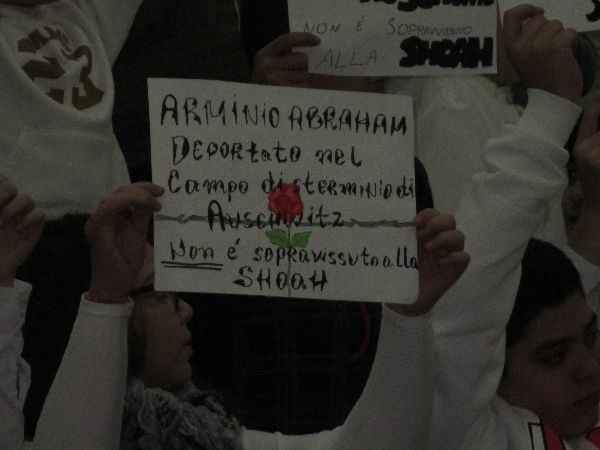 NON È SOPRAVVISSUTO
ALLA SHOAH
ARMINIO ABRAHAM
DEPORTATO NEL
CAMPO DI STERMINIO DI
AUSCHWITZ
NON È SOPRAVISSUTO ALLA
SHOAH